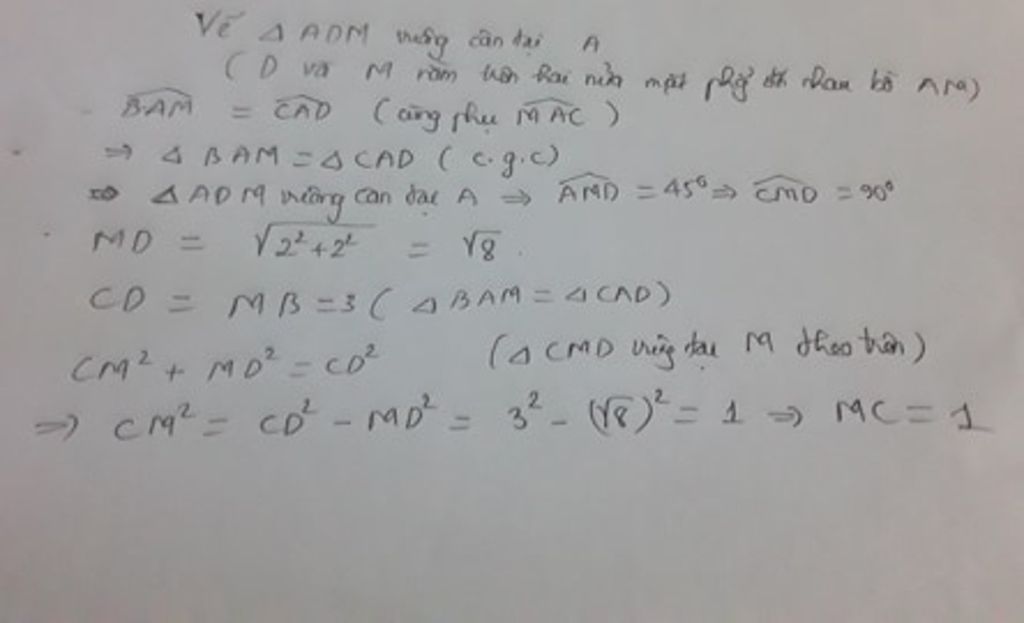 Vẽ △ ADM vuông cân tại A
( D và M nằm trên hai nửa mặt phẳng đối nhau bờ AM)
\widehat{BAM} = \widehat{CAD} (cùng phụ \widehat{MAC} )
⇒ △ BAM = △ CAD ( c.g.c)
⇒ △ ADM vuông cân tại A ⇒ \widehat{AMD} = 45° ⇒ \widehat{CMD} = 90°
MD = √(2² + 2²) = √8 .
CD = MB = 3 ( △ BAM = △ CAD)
CM² + MD² = CD² (△ CMD vuông tại M theo trên)
⇒ CM² = CD² - MD² = 3² - (√8)² = 1 ⇒ MC = 1